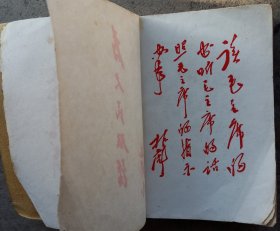 读毛主席的
书听毛主席的话
照毛主席的指示
办事
林彪
为人民服务